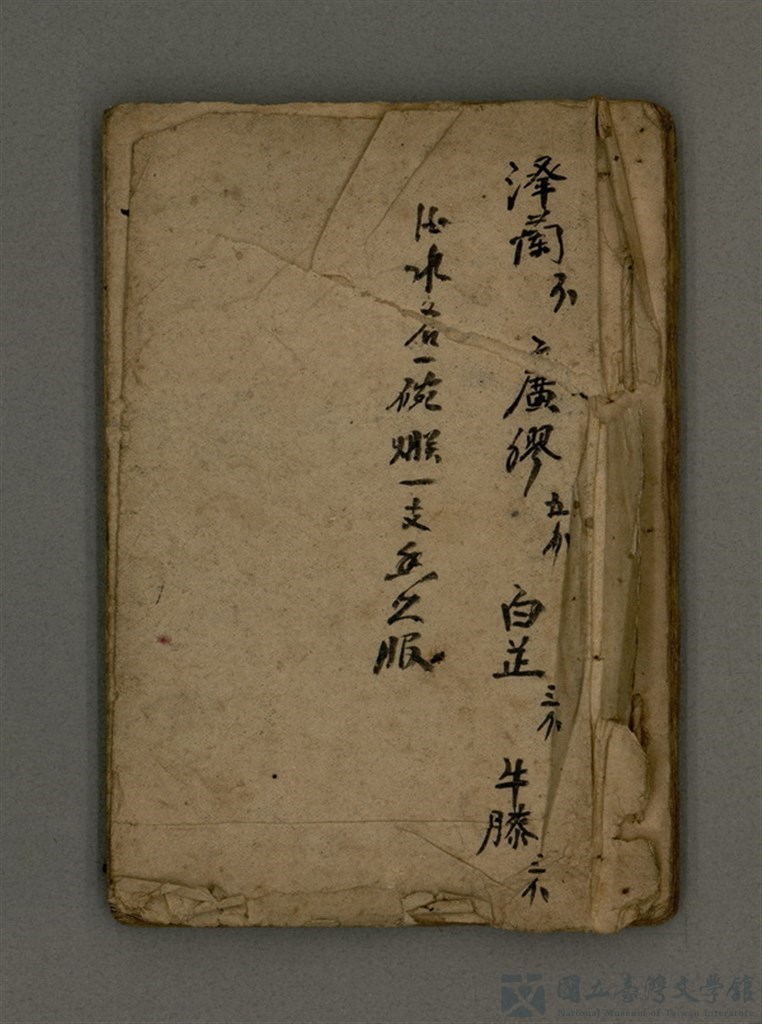 澤蘭 廣膠五分 白芷三分 牛膝三分
水各一碗燉一支香久服
國立臺灣文學館
National Museum of Taiwan Literature